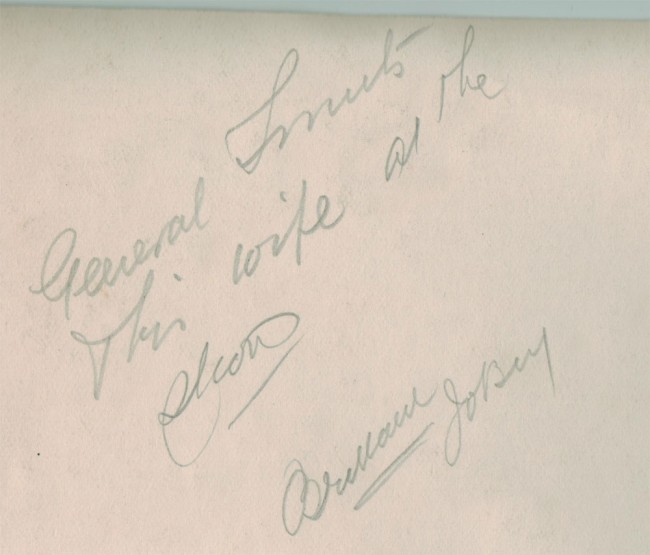 General Smuts
+ his wife at the
Show
JoBurg